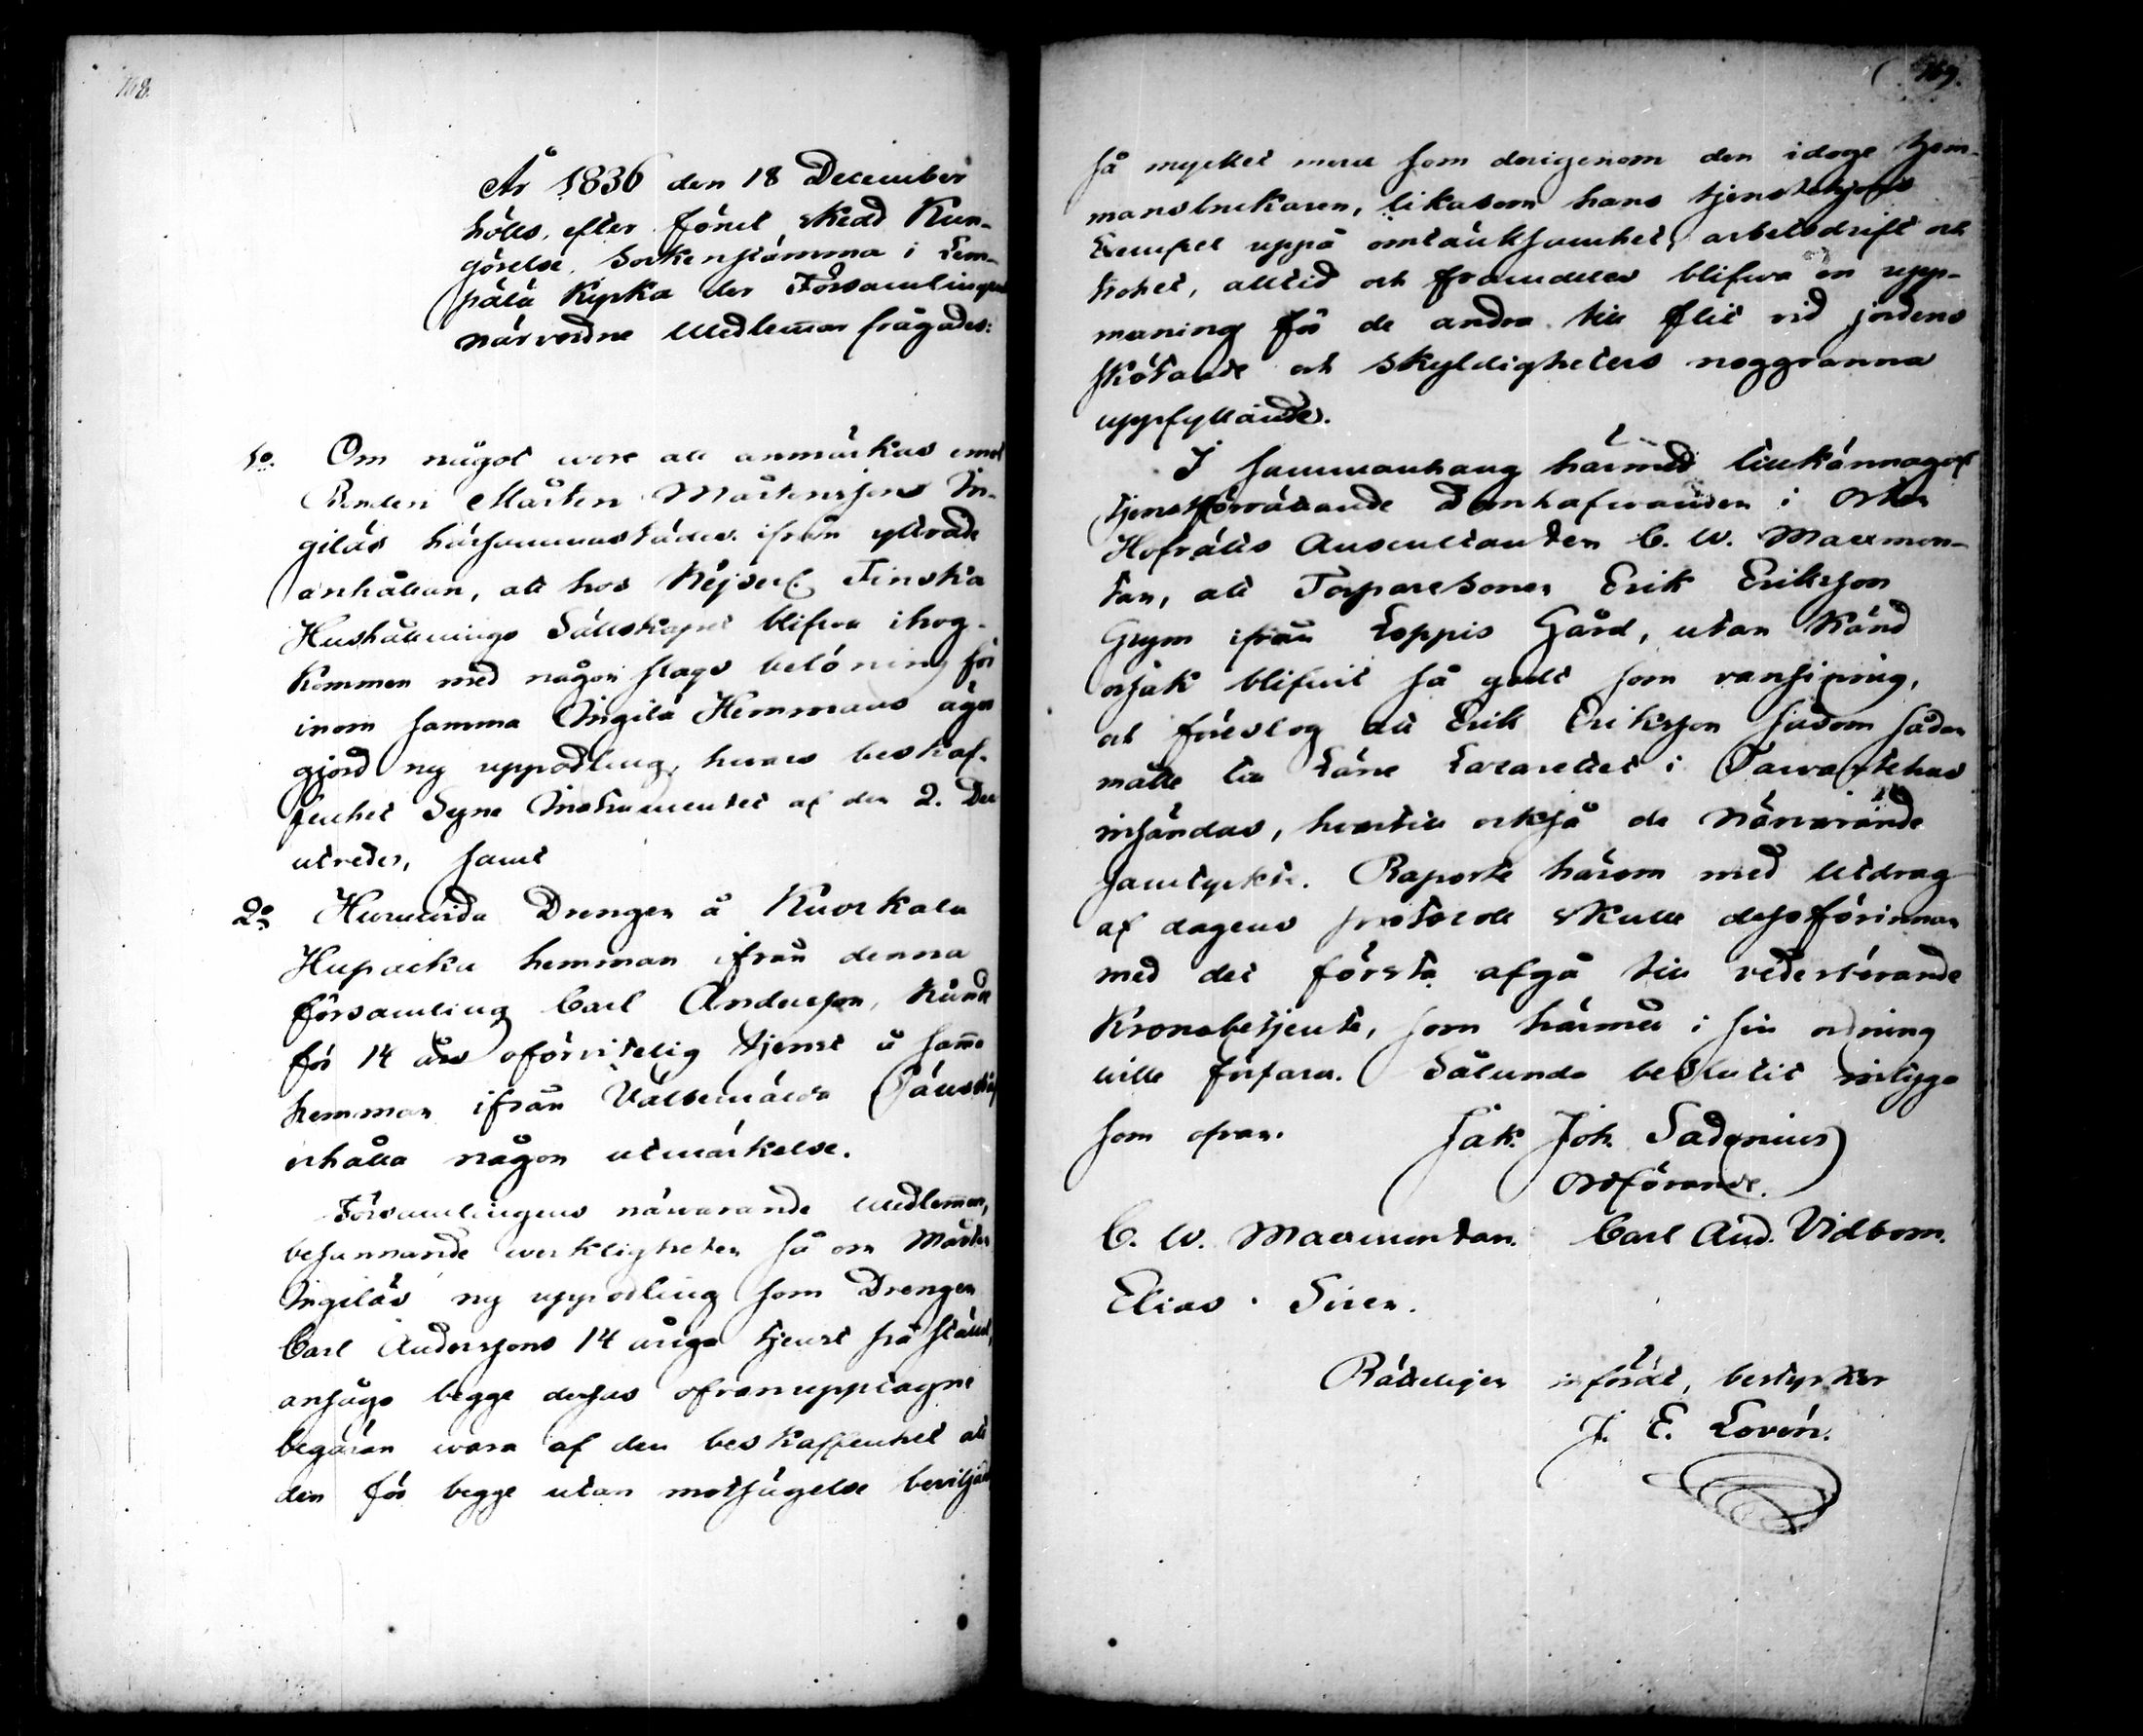 168.
År 1836 den 18 December
hölls, efter förut skedd Kun-
görelse, Sockenstämma i Lem-
pälä Kyrka der Församlingens
närvordne Medlemar frågades:
1o. Om något vore att anmärkas emot
Bonden Mårten Mårtensson In-
giläs härsammastädes ifrån yttrade
anhållan, att hos Kejserl. Finska
Hushållnings Sällskapet blifva ihog-
kommen med någon slags belöning för
inom samma Ingilä Hemmans ägor
gjord ny uppodling, hvars beskaf-
fenhet Syne Instrumentet af den 2. Dec
utreder, samt
2o Huruvida Drengen å Kuokkala
Hupacka hemman ifrån denna
församling Carl Andersson, kunde
för 14 års oförvitelig tjenst å sama
hemman ifrån Välbemälda Sällskap
erhålla någon utmärkelse.
Församlingens närvarande Medlemar,
besannande verkligheten så om Mårten
Ingiläs ny uppodling som Drengen
Carl Anderssons 14 åriga tjenst på ställe,
ansågo begge dessas ofvanupptagne
begäran vara af den beskaffenhet att
den för begge utan motsägelse beviljades
169.
så mycket mera som derigenom den idoge hem-
mansbrukaren, likasom hans tjenstehjons
Exempel uppå omtänksamhet, arbetsdrift och
trohet, alltid och framdeles blifva en upp-
maning för de andra till flit vid jordens
skötande och skyldigheters noggranna
uppfyllande.
I sammanhang härmed tillkännagaf
tjenstförrättande Domhafvanden i Orten
Hofrätts Auscultanten C. W. Maexmon-
tan, att Torparesonen Erik Eriksson
Grym ifrån Loppis Gård, utan känd
orsak blifvit så godt som vansinnig,
och föreslog att Erik Eriksson såsom sådan
måtte till Läne Lazarettet i Tavastehus
insändas, hvartill också de Närvarande
samtyckte. Raporte härom med utdrag
af dagens protocoll skulle dessförinnan
med det första afgå till vederbörande
Kronobetjente, som härmed i sin ordning
ville förfara. Sålunda beslutit intyga
som ofvan. Jak. Joh. Sadenius
Ordförande.
C. W. Maexmontan. Carl And. Vidbom.
Elias Siren.
Rätteligen infördt, bestyrker
J. E. Lovén.